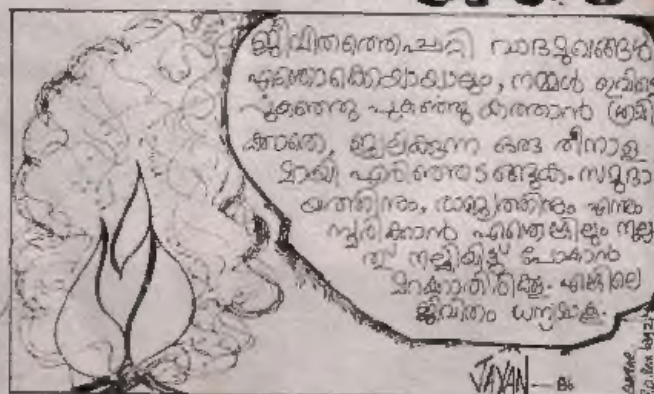 ജീവിതത്തെപ്പറ്റി വാദമുഖങ്ങൾ
എന്തൊക്കെയായാലും, നമ്മൾ ഇവിടെ
പുകഞ്ഞു പുകഞ്ഞു കത്താൻ ശ്രമി
ക്കാതെ, ജ്വലിക്കുന്ന ഒരു തീനാള
മായി എരിഞ്ഞടങ്ങുക. സമുദാ
യത്തിനും, രാജ്യത്തിനും എന്നും
സ്മരിക്കാൻ എന്തെങ്കിലും നല്ല
ത് നല്കിയിട്ട് പോകാൻ
മറക്കാതിരിക്കൂ. എങ്കിലെ
ജീവിതം ധന്യമാകൂ.
JAYAN — 86
QATAR
P.O. Box